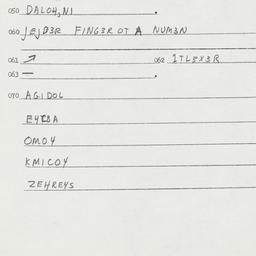 050 DALOH,NI
060 JEJD3R FING3R OT A NUM3N
061 062 1TL5X3R
063 —
070 AGIDOL
OMOY
KMICOY
ZEHREYS